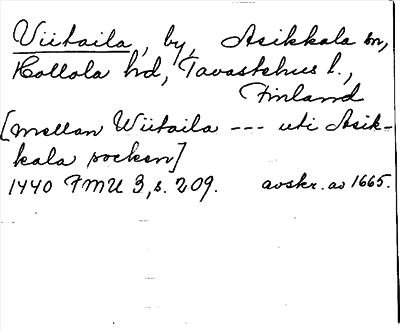 Viitaila, by, Asikkala sn,
Hollola hd, Tavastehus l.,
Finland
[mellan Wiitaila --- uti Asik-
kala socken]
1440 FMU 3, s. 209. avskr. av 1665.